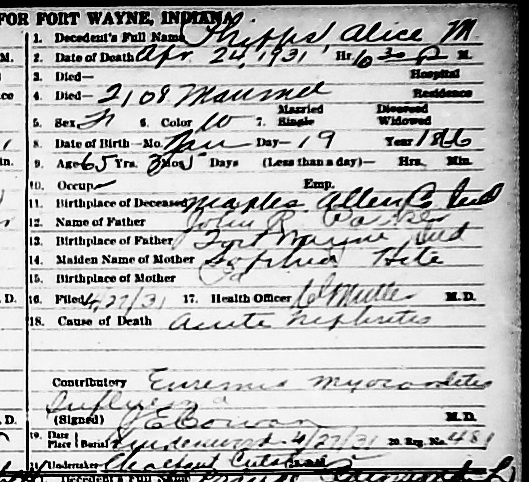 FOR FORT WAYNE, INDIANA
1. Decedent's Full Name Phipps, Alice M
2. Date of Death Apr 24, 1931 Hr. 6 30 P M.
3. Died— Hospital
4. Died— 2108 Maumee Residence
Married Divorced
5. Sex F 6. Color W 7. Single Widowed
8. Date of Birth—Mo. Day—19 Year 1866
9. Age 65 Yrs. 3 Mos. 5 Days (Less than a day)— Hrs. Min.
10. Occup. Emp.
11. Birthplace of Deceased Maples Allen Co Ind
12. Name of Father John R. Parker
13. Birthplace of Father Fort Wayne Ind
14. Maiden Name of Mother Sophia Hite
15. Birthplace of Mother Pa
16. Filed 4/27/31 17. Health Officer M.D.
18. Cause of Death Acute Nephritis
Contributory Euremia Myocarditis
Influenza
(Signed) J E Bowan M.D.
19. Date Place Burial Lindenwood 4/27/31 20. Reg. No. 481
21. Undertaker
1. Decedent's Full Name